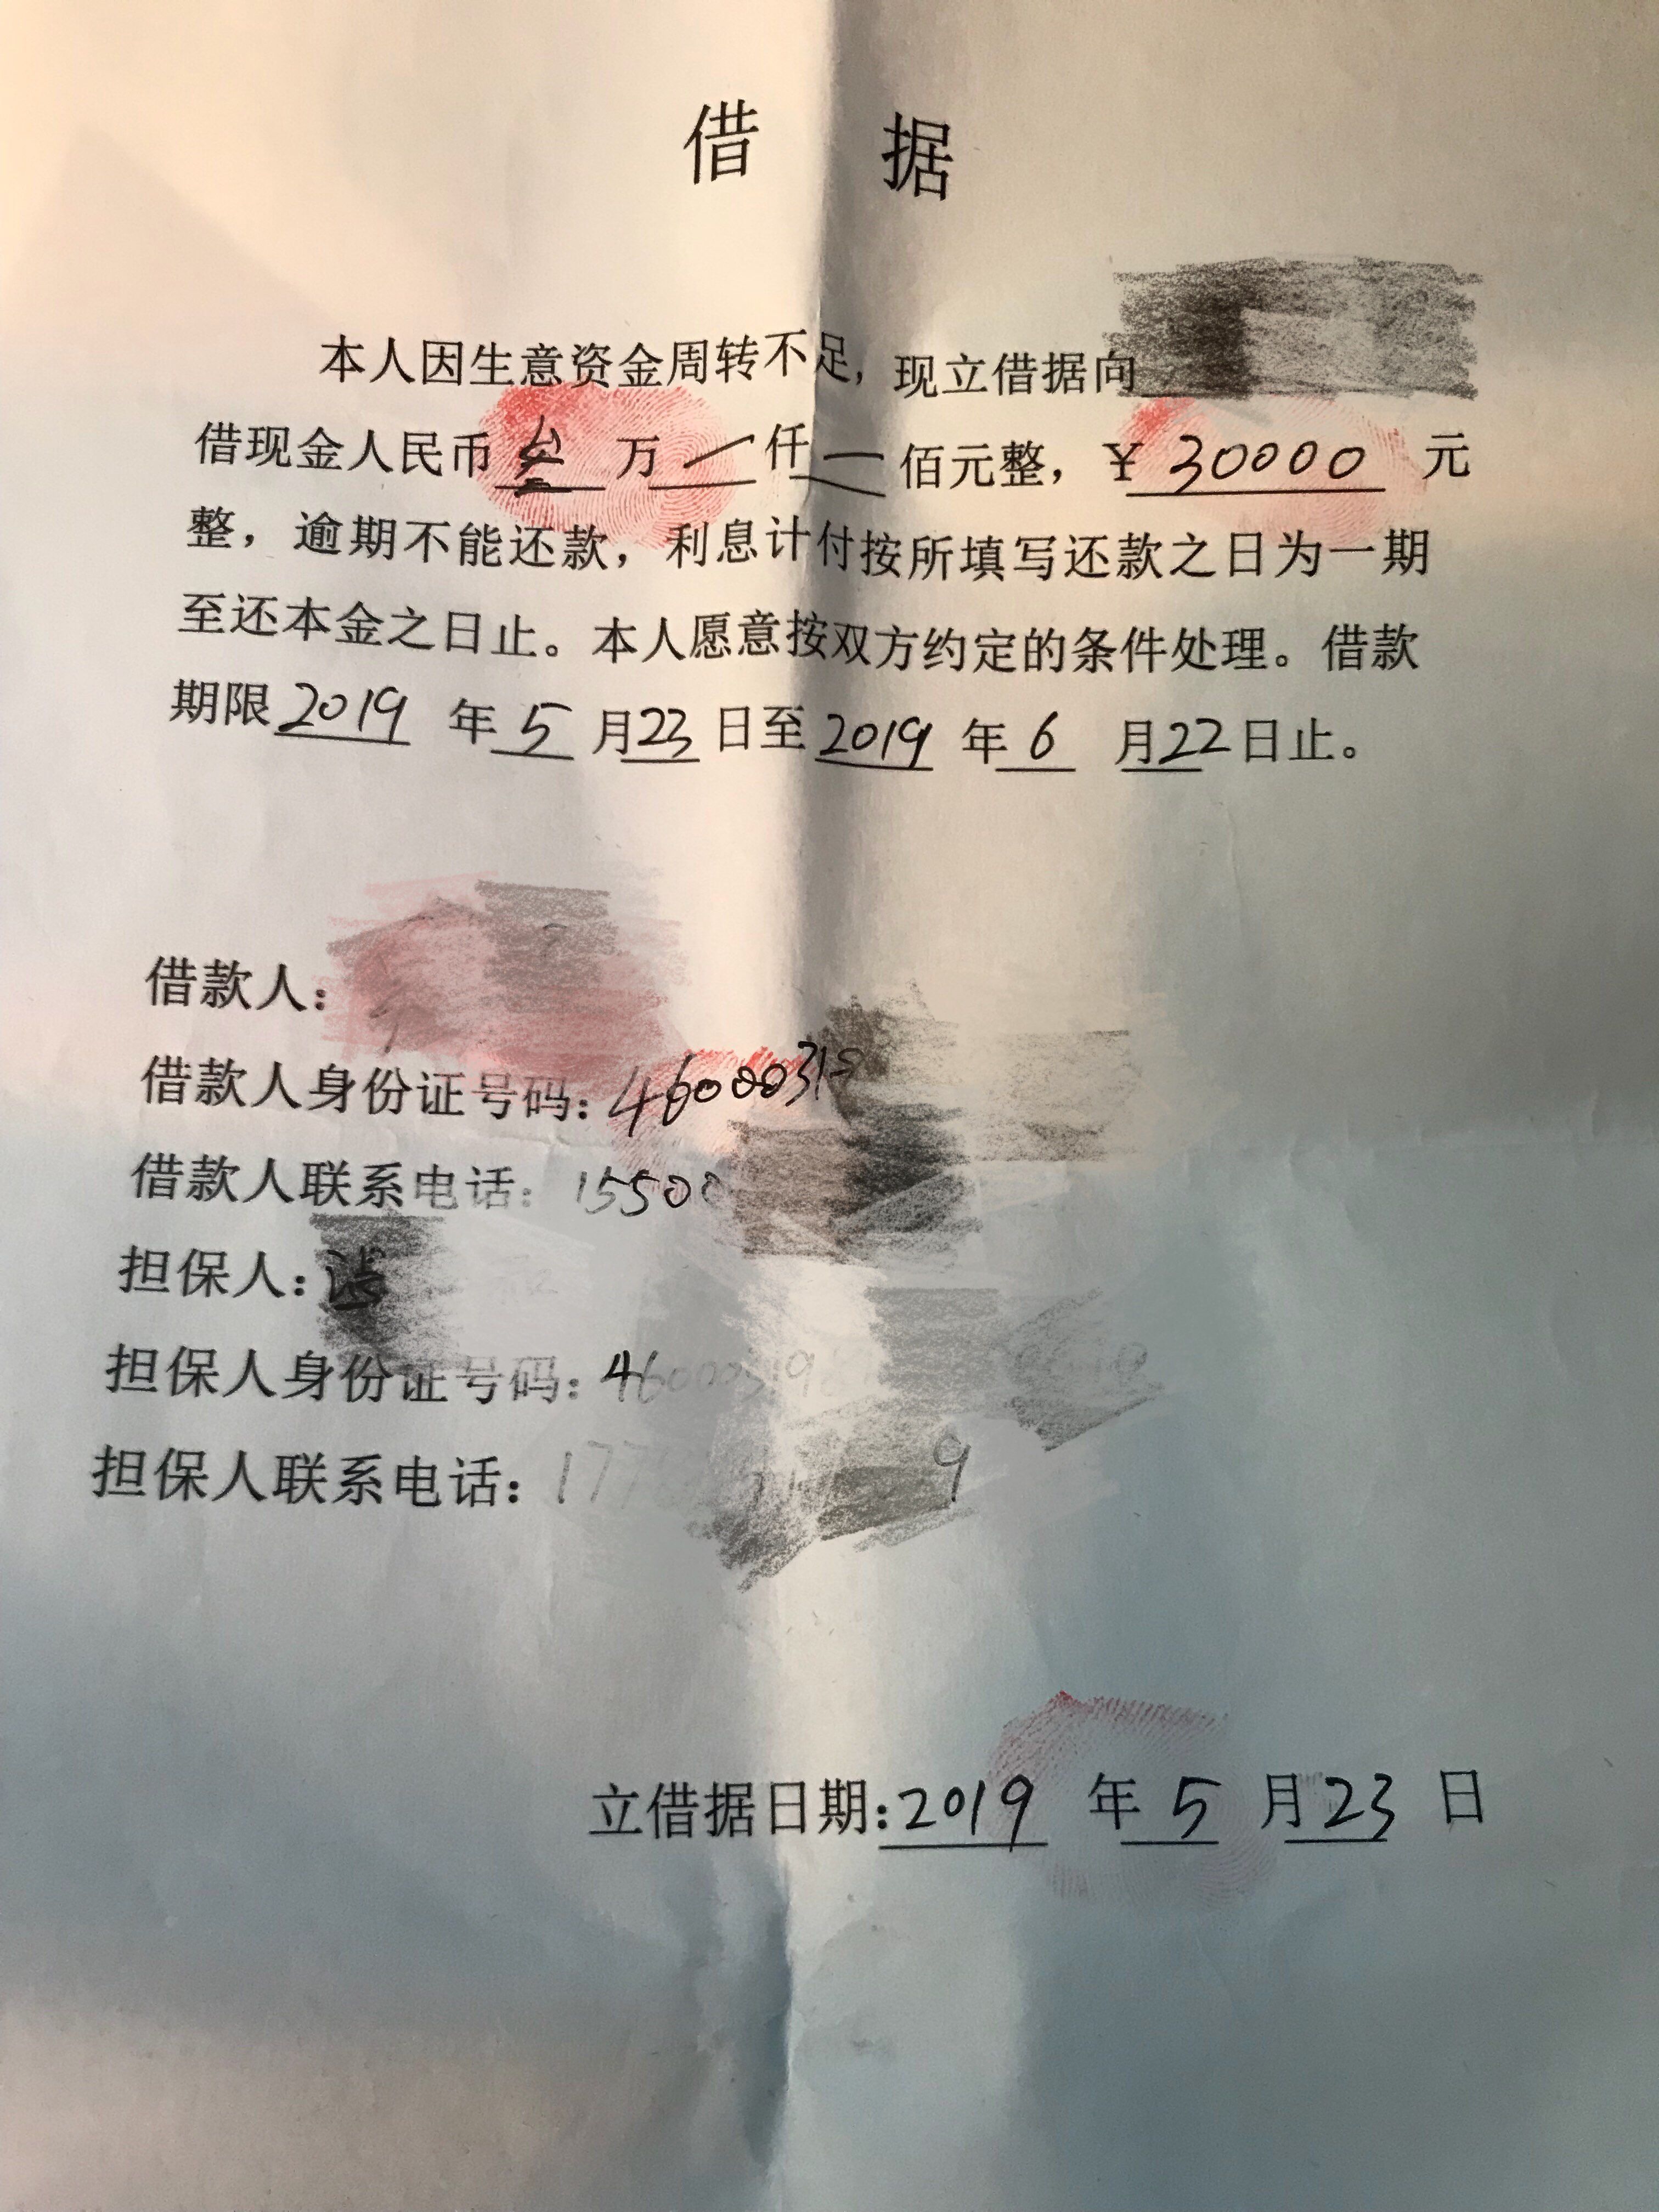 借 据
本人因生意资金周转不足,现立借据向
借现金人民币叁万一仟一佰元整,¥30000元
整,逾期不能还款,利息计付按所填写还款之日为一期
至还本金之日止。本人愿意按双方约定的条件处理。借款
期限2019年5月23日至2019年6月22日止。
借款人:
借款人身份证号码:
借款人联系电话:
担保人:
担保人身份证号码:
担保人联系电话:
立借据日期:2019年5月23日